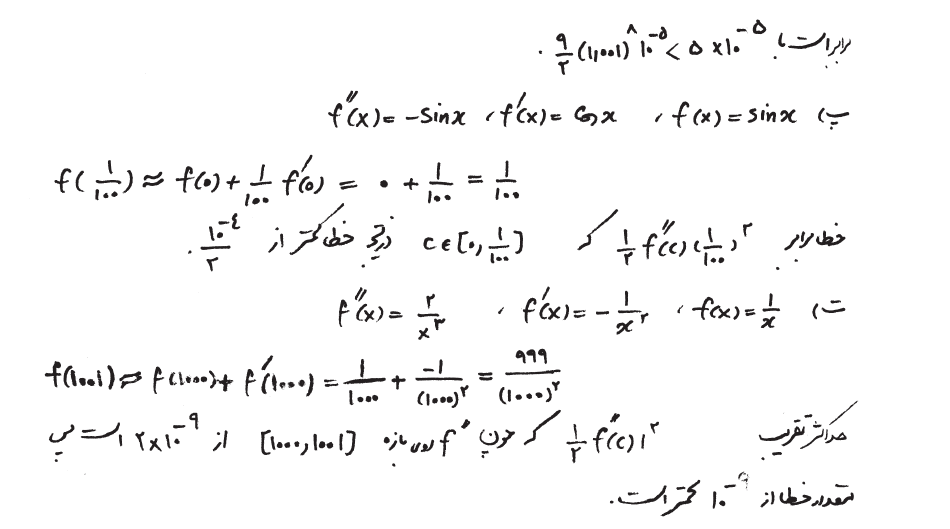 برابر است با $\frac{۹}{۲}(۱,۰۰۱)^{۸} ۱۰^{-۵} < ۵ \times ۱۰^{-۵}$ .
پ) $f(x) = \sin x$ ، $f'(x) = \cos x$ ، $f''(x) = -\sin x$
$f(\frac{۱}{۱۰۰}) \approx f(۰) + \frac{۱}{۱۰۰} f'(۰) = ۰ + \frac{۱}{۱۰۰} = \frac{۱}{۱۰۰}$
خطا برابر $\frac{۱}{۲} f''(c) (\frac{۱}{۱۰۰})^{۲}$ که $c \in [۰, \frac{۱}{۱۰۰}]$ در نتیجه خطا کمتر از $\frac{۱۰^{-۴}}{۲}$ .
ت) $f(x) = \frac{۱}{x}$ ، $f'(x) = -\frac{۱}{x^{۲}}$ ، $f''(x) = \frac{۲}{x^{۳}}$
$f(۱۰۰۱) \approx f(۱۰۰۰) + f'(۱۰۰۰) = \frac{۱}{۱۰۰۰} + \frac{-۱}{(۱۰۰۰)^{۲}} = \frac{۹۹۹}{(۱۰۰۰)^{۲}}$
حداکثر تقریب $\frac{۱}{۲} f''(c) ۱^{۲}$ که چون $f''$ روی بازه $[۱۰۰۰, ۱۰۰۱]$ از $۲ \times ۱۰^{-۹}$ است پس
مقدار خطا از $۱۰^{-۹}$ کمتر است.